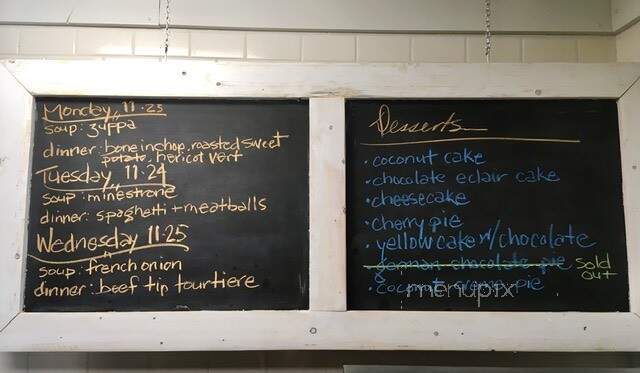 Monday 11.23
soup: zuppa
dinner: bone in chop, roasted sweet
potato, hericot vert
Tuesday 11.24
soup: minestrone
dinner: spaghetti + meatballs
Wednesday 11.25
soup: french onion
dinner: beef tip tourtiere
Desserts
• coconut cake
• chocolate eclair cake
• cheesecake
• cherry pie
• yellow cake w/ chocolate
german chocolate pie Sold out
• coconut creme pie
menupix